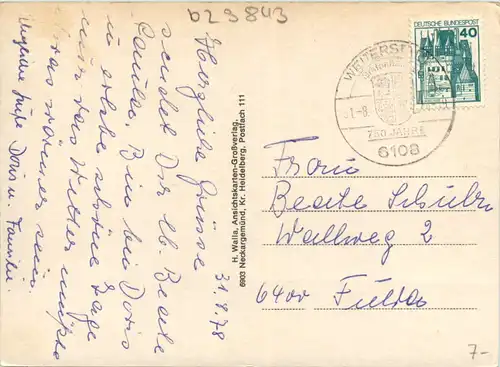 b23843
31.8.78
Herzliche Grüsse
sendet Dir lb. Beate
Paula. Bin bei Doris
u. erlebe schöne Tage
nur das Wetter müsste
was wärmer sein.
Doris u. Familie.
H. Walla, Ansichtskarten-Großverlag,
6903 Neckargemünd, Kr. Heidelberg, Postfach 111
DEUTSCHE BUNDESPOST
40
WEITERST
750 JAHRE
6108
Frau
Beate Schulze
Wallweg 2
6400 Fulda
7-